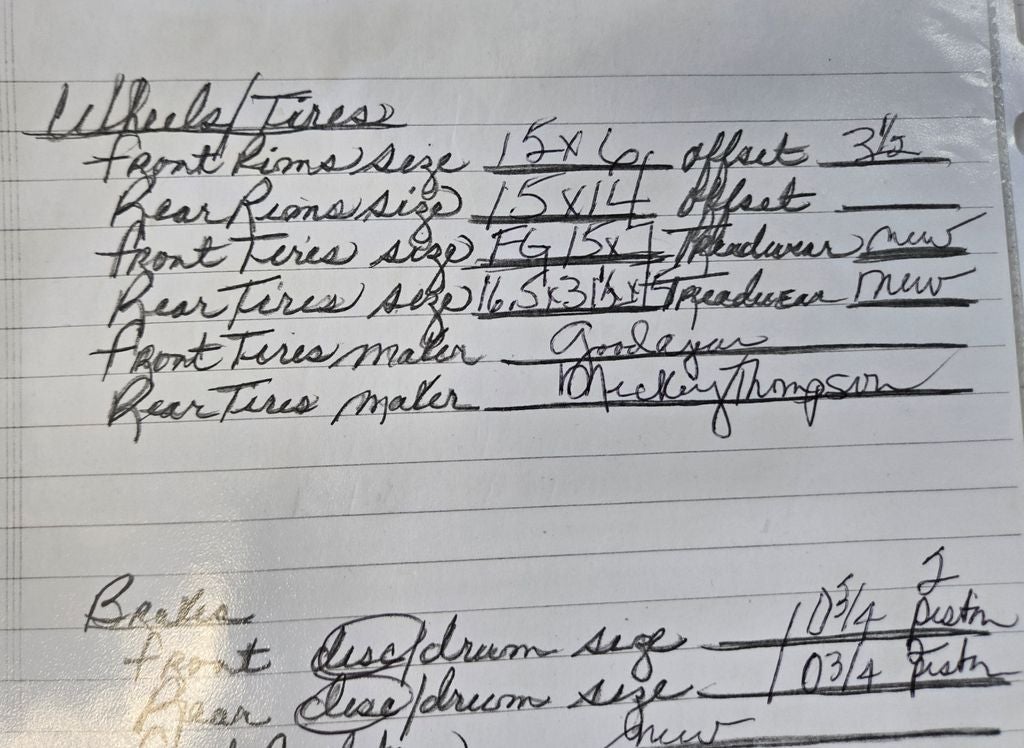 Wheels/Tires
front Rims size 15x6 offset 3 1/2
Rear Rims size 15x14 offset
front Tires size FG 15x7 Treadwear new
Rear Tires size 16.5x31 1/2x15 Treadwear new
front Tires maker Goodayar
Rear Tires maker Mickey Thompson
Brakes
front disc/drum size 10 3/4 2 Piston
Rear disc/drum size 10 3/4 Piston
new